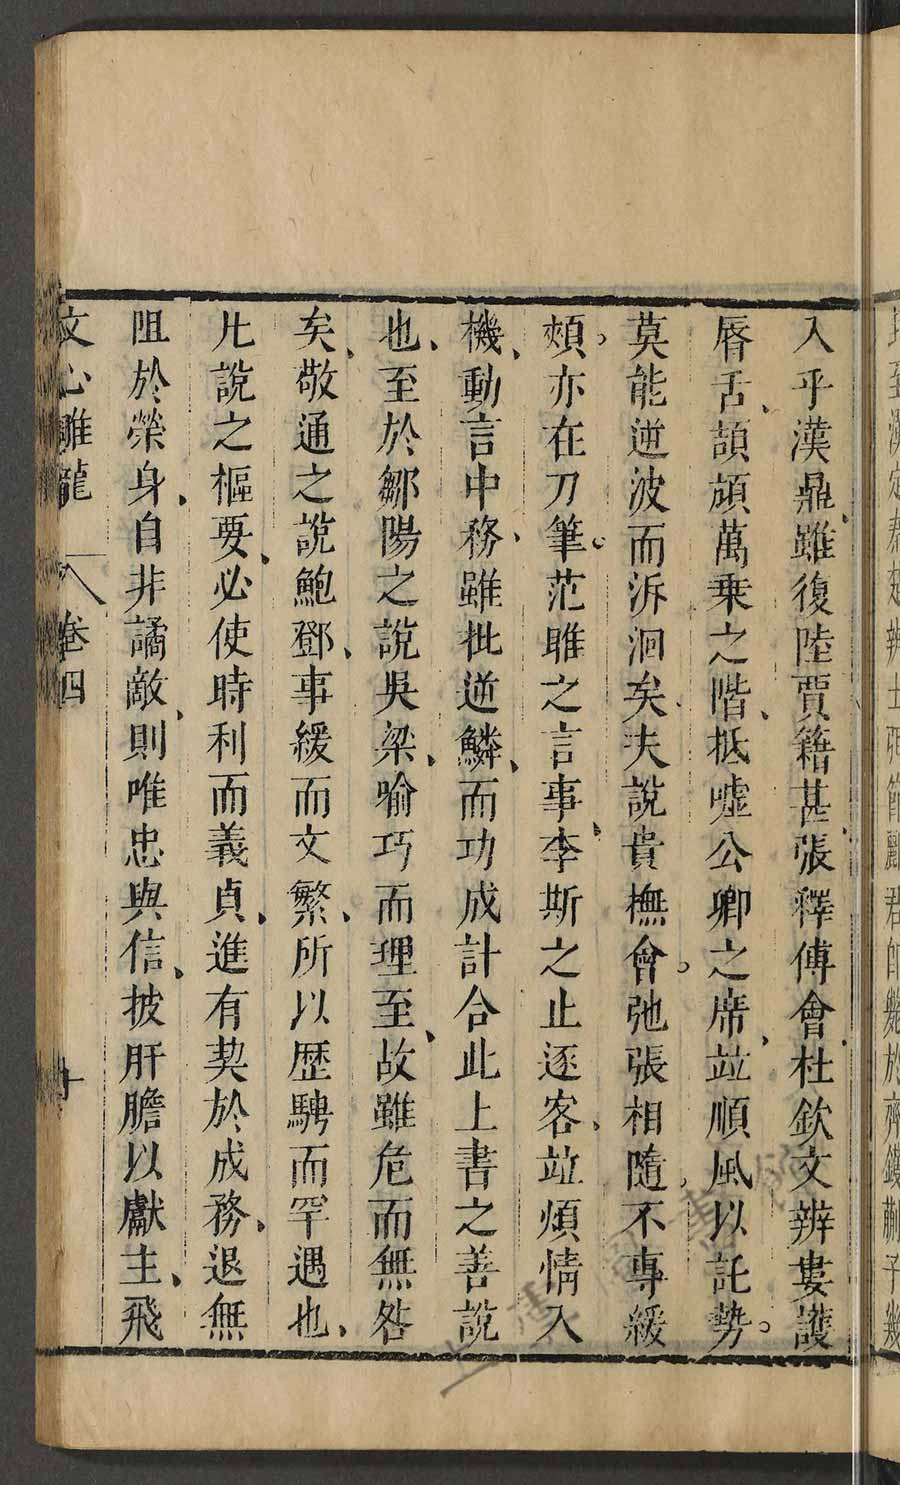 入乎漢鼎、雖復陸賈籍甚、張釋傅會、杜欽文辨婁護
唇舌、頡頏萬乘之階、抵噓公卿之席、竝順風以託勢。
莫能逆波而泝洄矣、夫說貴橅會。弛張相隨。不專緩
頰。亦在刀筆。范雎之言事、李斯之止逐客、竝煩情入
機、動言中務、雖批逆鱗、而功成計合此上書之善說
也、至於鄒陽之說吳梁、喻巧而理至、故雖危而無咎
矣、敬通之說鮑鄧、事緩而文繁、所以歴騁而罕遇也、
凡說之樞要、必使時利而義貞、進有契於成務、退無
阻於榮身、自非譎敵、則唯忠與信、披肝膽以獻主、飛
文心雕龍 卷四 十